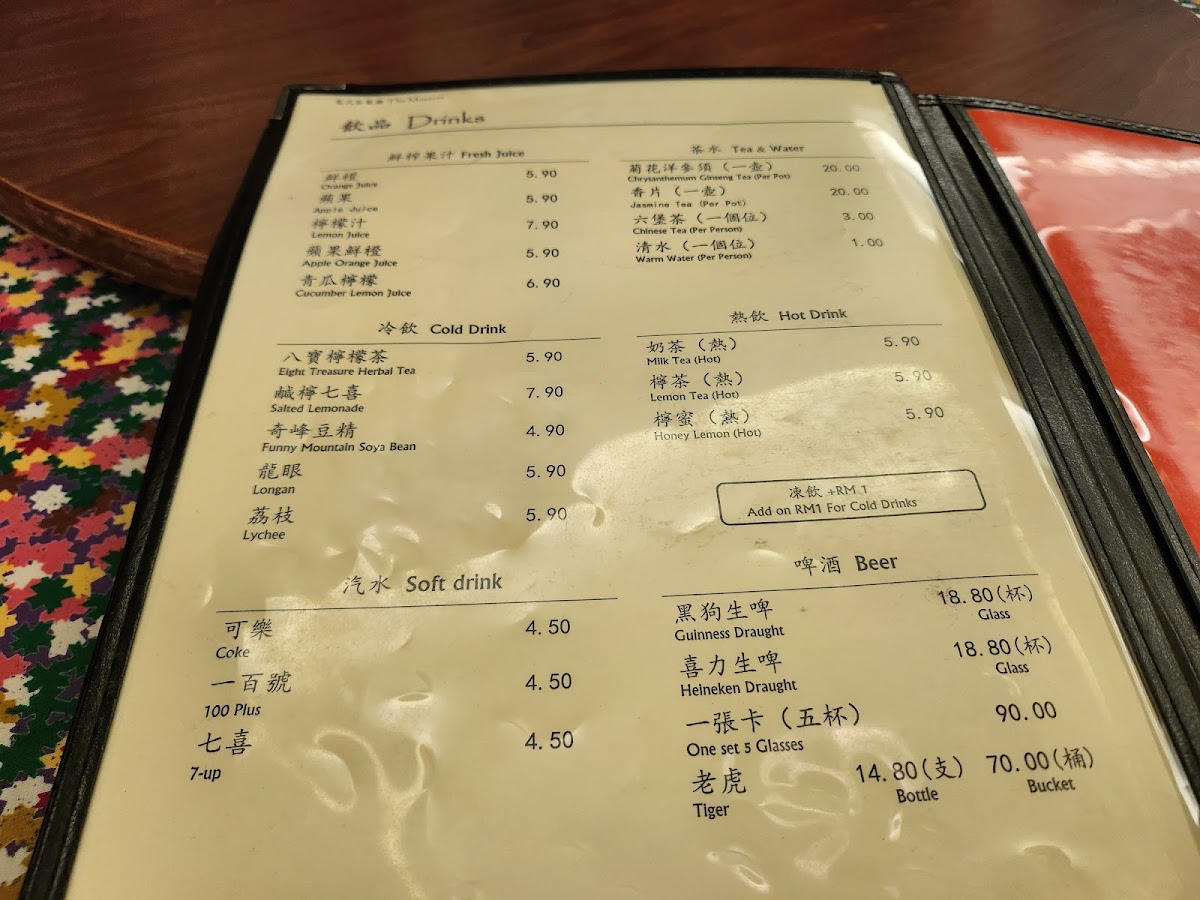 飲品 Drinks
鮮榨果汁 Fresh Juice
鮮橙 5.90
Orange Juice
蘋果 5.90
Apple Juice
檸檬汁 7.90
Lemon Juice
蘋果鮮橙 5.90
Apple Orange Juice
青瓜檸檬 6.90
Cucumber Lemon Juice
冷飲 Cold Drink
八寶檸檬茶 5.90
Eight Treasure Herbal Tea
鹹檸七喜 7.90
Salted Lemonade
奇峰豆精 4.90
Funny Mountain Soya Bean
龍眼 5.90
Longan
荔枝 5.90
Lychee
汽水 Soft drink
可樂 4.50
Coke
一百號 4.50
100 Plus
七喜 4.50
7-up
茶水 Tea & Water
菊花洋參須（一壺） 20.00
Chrysanthemum Ginseng Tea (Per Pot)
香片（一壺） 20.00
Jasmine Tea (Per Pot)
六堡茶（一個位） 3.00
Chinese Tea (Per Person)
清水（一個位） 1.00
Warm Water (Per Person)
熱飲 Hot Drink
奶茶（熱） 5.90
Milk Tea (Hot)
檸茶（熱） 5.90
Lemon Tea (Hot)
檸蜜（熱） 5.90
Honey Lemon (Hot)
凍飲 +RM 1
Add on RM1 For Cold Drinks
啤酒 Beer
黑狗生啤 18.80(杯)
Guinness Draught Glass
喜力生啤 18.80(杯)
Heineken Draught Glass
一張卡（五杯） 90.00
One set 5 Glasses
老虎 14.80(支) 70.00(桶)
Tiger Bottle Bucket